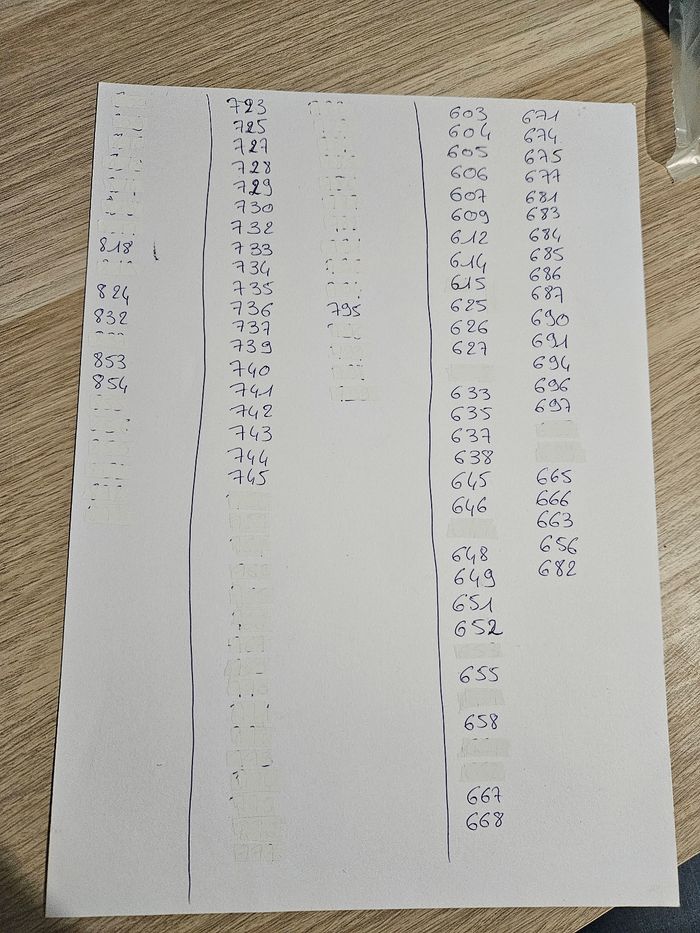 818
824
832
853
854
723
725
727
728
729
730
732
733
734
735
736
737
739
740
741
742
743
744
745
795
603
604
605
606
607
609
612
614
615
625
626
627
633
635
637
638
645
646
648
649
651
652
655
658
667
668
671
674
675
677
681
683
684
685
686
687
690
691
694
696
697
665
666
663
656
682